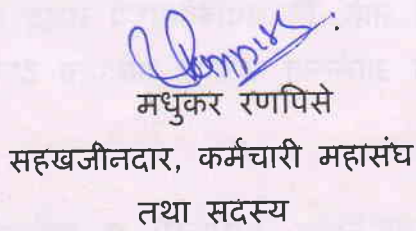 मधुकर रणपिसे
सहखजीनदार, कर्मचारी महासंघ
तथा सदस्य